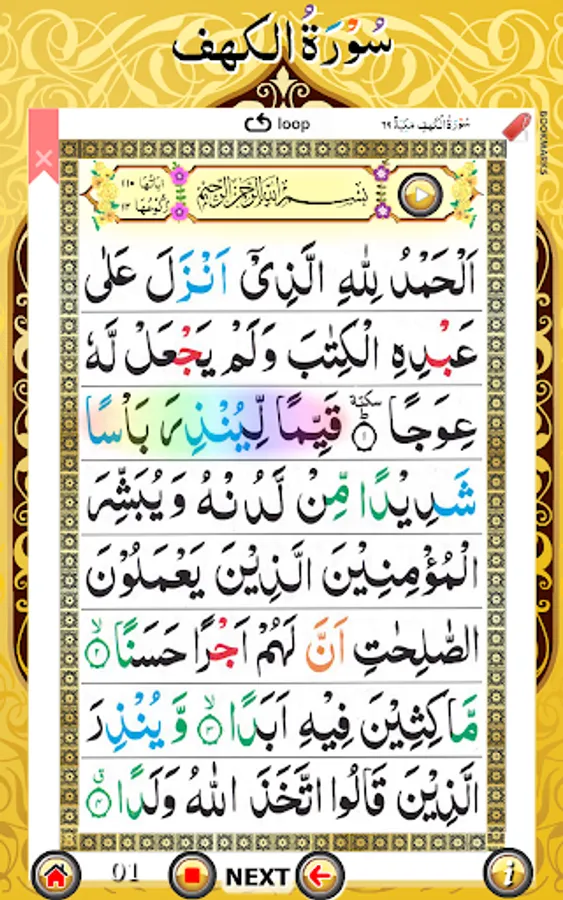 سُوْرَةُ الْكَهْف
loop
سُوْرَةُ الْكَهْفِ مَكِّيَّةٌ ٦٩
BOOKMARKS
اٰيَاتُهَا ١١٠
رُكُوْعُهَا ١٢
بِسْمِ اللهِ الرَّحْمٰنِ الرَّحِيْمِ
اَلْحَمْدُ لِلّٰهِ الَّذِیْۤ اَنْزَلَ عَلٰى
عَبْدِهِ الْكِتٰبَ وَلَمْ يَجْعَلْ لَّهٗ
عِوَجًا ؕ سكتة ١ قَيِّمًا لِّيُنْذِرَ بَاْسًا
شَدِيْدًا مِّنْ لَّدُنْهُ وَ يُبَشِّرَ
الْمُؤْمِنِيْنَ الَّذِيْنَ يَعْمَلُوْنَ
الصّٰلِحٰتِ اَنَّ لَهُمْ اَجْرًا حَسَنًا ۙ ٢
مَّاكِثِيْنَ فِيْهِ اَبَدًا ۙ ٣ وَّ يُنْذِرَ
الَّذِيْنَ قَالُوا اتَّخَذَ اللهُ وَلَدًا ۗ ٤
01 NEXT i